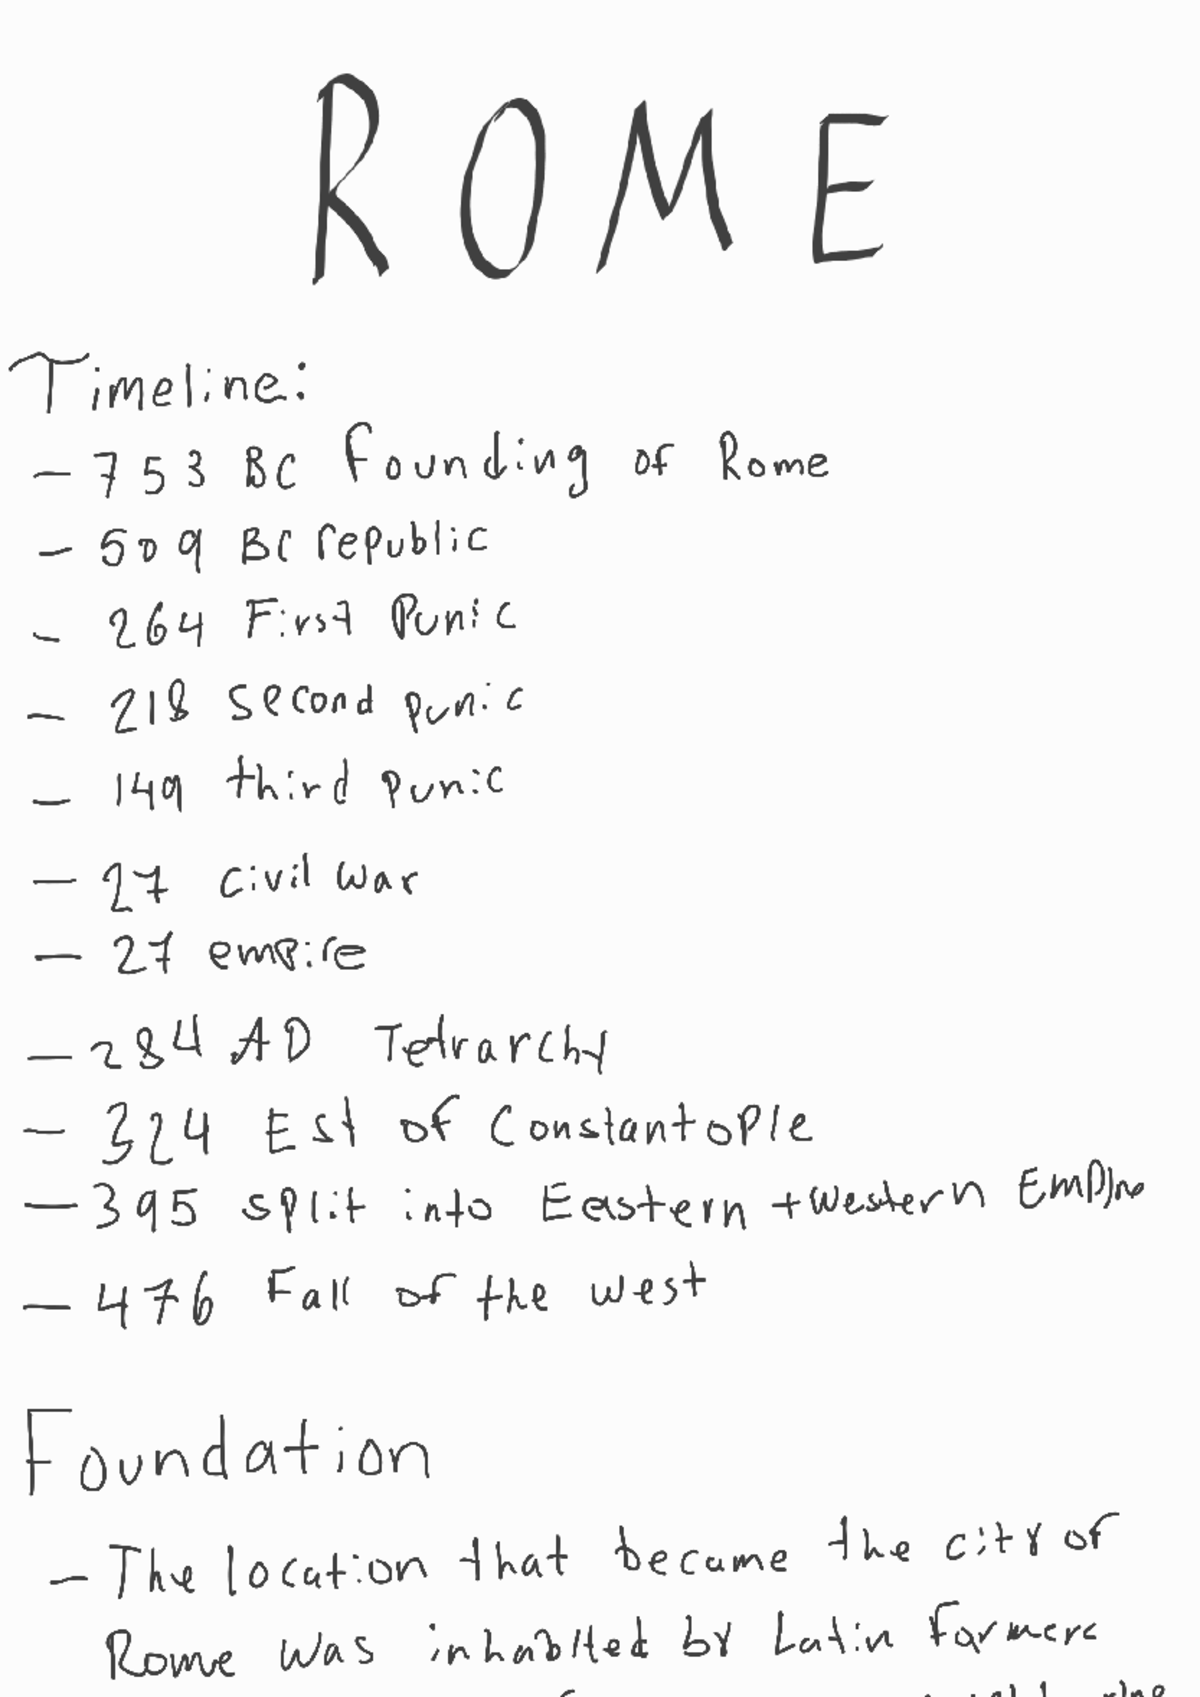 ROME
Timeline:
- 753 BC Founding of Rome
- 509 BC republic
- 264 First Punic
- 218 second punic
- 149 third punic
- 27 civil war
- 27 empire
- 284 AD Tetrarchy
- 324 Est of Constantople
- 395 split into Eastern + western Empire
- 476 Fall of the west
Foundation
- The location that became the city of
Rome was inhabited by Latin farmers